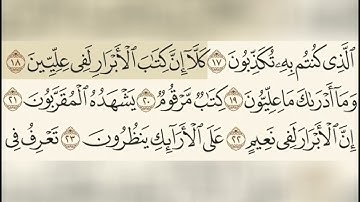 الَّذِي كُنتُم بِهِۦ تُكَذِّبُونَ ١٧ كَلَّآ إِنَّ كِتَٰبَ الْأَبْرَارِ لَفِي عِلِّيِّينَ ١٨
وَمَآ أَدْرَىٰكَ مَا عِلِّيُّونَ ١٩ كِتَٰبٌ مَّرْقُومٌ ٢٠ يَشْهَدُهُ الْمُقَرَّبُونَ ٢١
إِنَّ الْأَبْرَارَ لَفِي نَعِيمٍ ٢٢ عَلَى الْأَرَآئِكِ يَنظُرُونَ ٢٣ تَعْرِفُ فِي